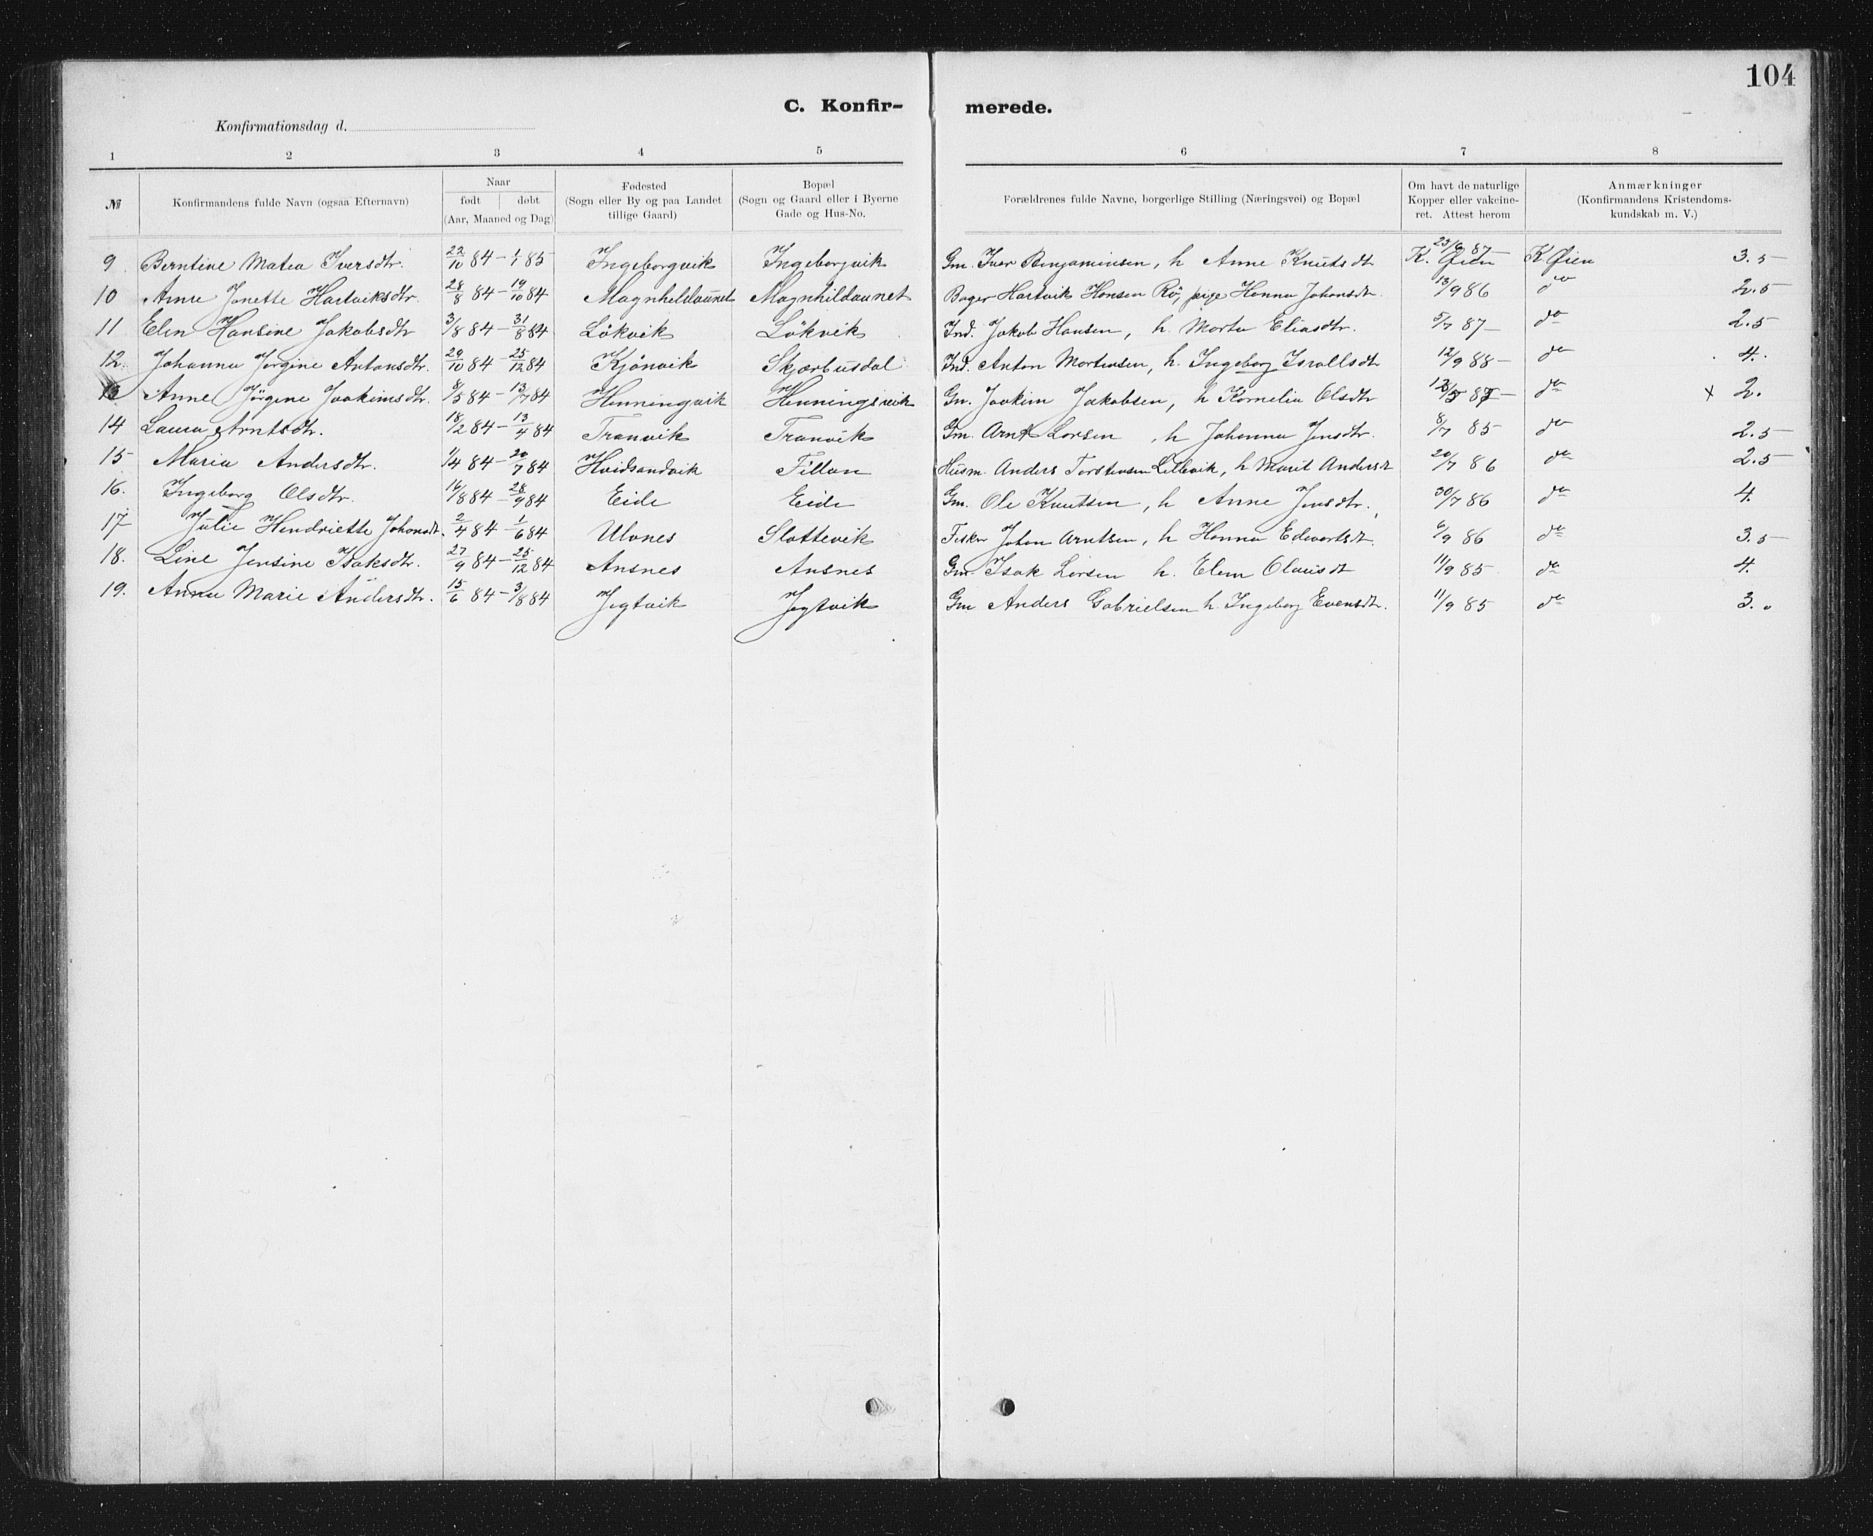 104
C. Konfir- merede.
Konfirmationsdag d.
1 2 3 4 5 6 7 8
№ Konfirmandens fulde Navn (ogsaa Efternavn) Naar født døbt (Aar, Maaned og Dag) Fødested (Sogn eller By og paa Landet tillige Gaard) Bopæl (Sogn og Gaard eller i Byerne Gade og Hus-No. Forældrenes fulde Navne, borgerlige Stilling (Næringsvei) og Bopæl Om havt de naturlige Kopper eller vakcineret. Attest herom Anmærkninger (Konfirmandens Kristendomskundskab m. V.)
9 Berntine Matea Iversdtr. 22/10 84 - 1/1 85 Ingeborgvik Ingeborgvik Gm. Iver Benjaminsen, h Anne Knutsdt 23/6 87 K. Øien K Øien 3.5
10 Anne Janette Hartviksdtr. 28/8 84 - 19/10 84 Magnhildaunet Magnhildaunet Bager Hartvik Hansen Rö, pige Hanna Johansdt. 13/9 86 do 2.5
11 Elen Hansine Jakobsdtr 3/8 84 - 31/8 84 Lökvik Lökvik Ind. Jakob Hansen, h. Marta Eliasdtr. 5/7 87 - do 2.5
12. Johanna Jørgine Antonsdtr. 29/10 84 - 25/12 84 Kjönvik Skjærbusdal Ind. Anton Mortensen, h. Ingeborg Isralsdt 12/9 88 - do 4.
13. Anne Jörgine Joakimsdtr. 8/5 84 - 13/7 84 Henningvik Henningsvik Gm. Joakim Jakobsen, h Kornelia Olsdtr do x 2.
14 Laura Arntsdtr. 18/2 84 - 13/4 84 Tranvik Tranvik Gm. Arnt Larsen, h Johanna Jensdtr. 8/7 85 do 2.5
15 Maria Andersdtr. 1/4 84 - 20/7 84 Hvidsandvik Fillan Husm. Anders Torstensen Lillevik, h Marit Andersdt 20/7 86 do 2.5
16. Ingeborg Olsdtr. 16/8 84 - 28/9 84 Eide Eide Gm. Ole Knutsen, h Anne Jensdtr. 30/7 86 do 4.
17 Julie Hendriette Johansdt. 2/4 84 - 1/6 84 Ulvnes Slattevik Fisker Johan Arntsen, h Hanna Edvartsdt. 6/9 86 do 3.5
18. Line Jensine Isaksdtr. 27/9 84 - 25/12 84 Ansnes Ansnes Gm. Isak Larsen h. Elen Olausdt 11/9 85 do 4.
19. Anna Marie Andersdtr. 15/6 84 - 3/8 84 Jegtvik Jegtvik Gm Anders Gabrielsen h. Ingeborg Evensdtr. 11/9 85 do 3.0